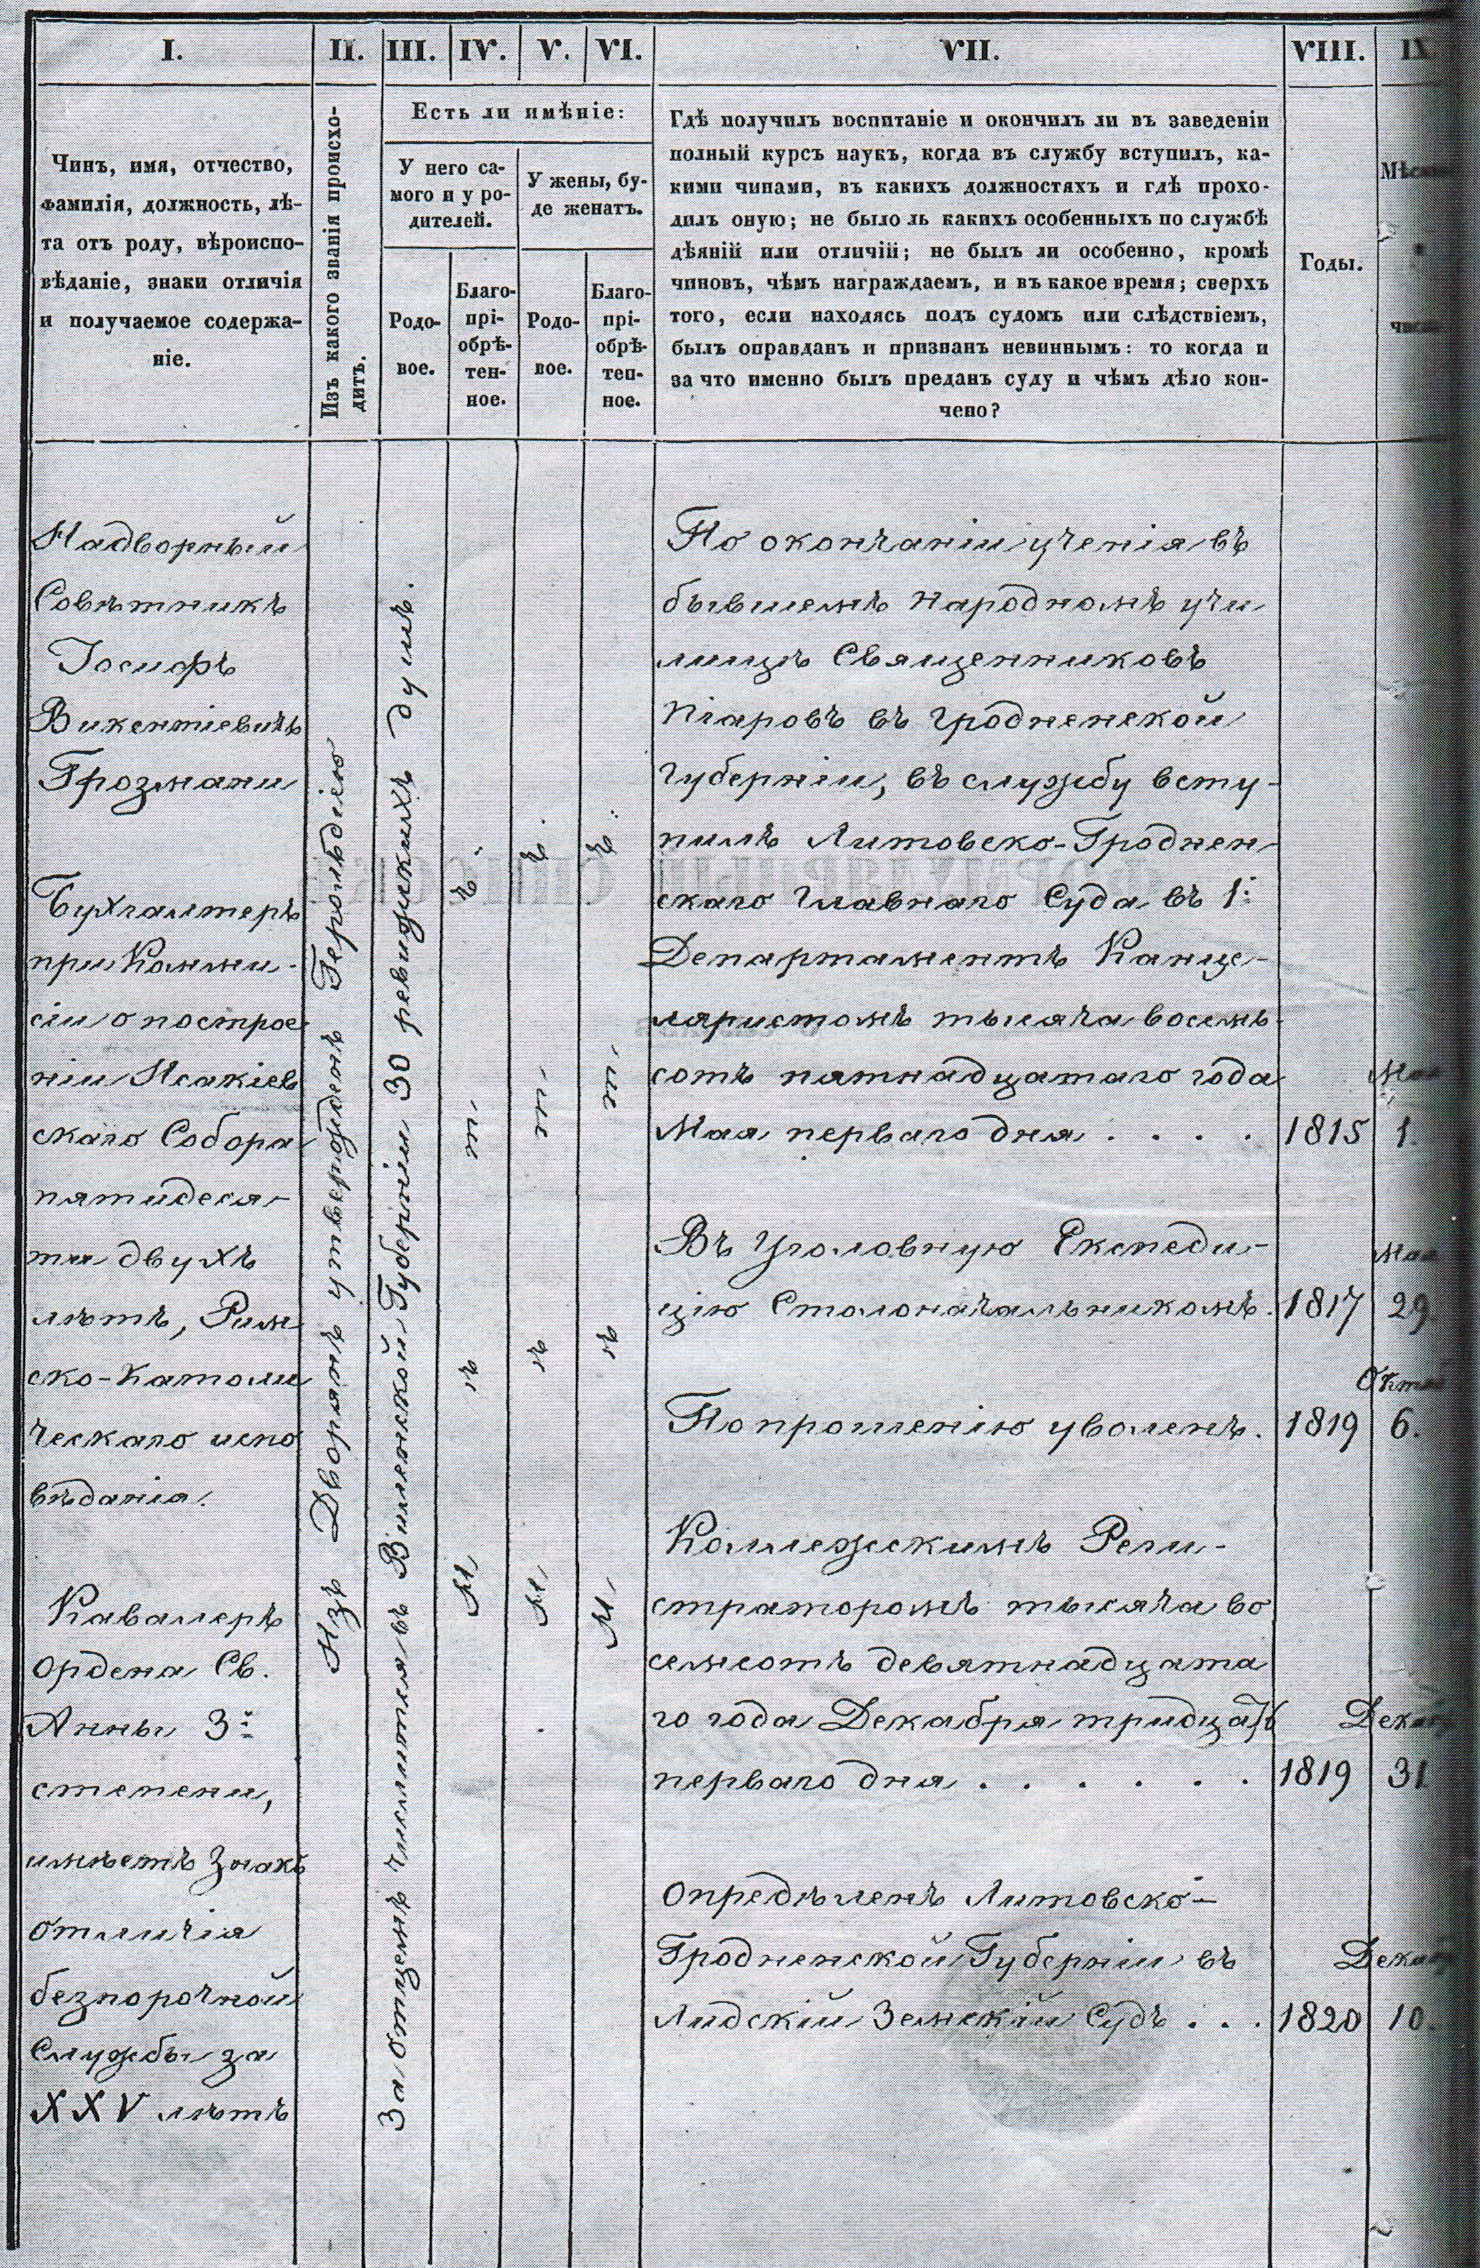 I.
II.
III.
IV.
V.
VI.
VII.
VIII.
IX.
Чинъ, имя, отчество,
фамилія, должность, лѣ-
та отъ роду, вѣроиспо-
вѣданіе, знаки отличія
и получаемое содержа-
ніе.
Изъ какого званія происхо-
дитъ.
Есть ли имѣніе:
У него са-
мого и у ро-
дителей.
У жены, бу-
де женатъ.
Родо-
вое.
Благо-
прі-
обрѣ-
тен-
ное.
Родо-
вое.
Благо-
прі-
обрѣ-
тен-
ное.
Гдѣ получилъ воспитаніе и окончилъ ли въ заведеніи
полный курсъ наукъ, когда въ службу вступилъ, ка-
кими чинами, въ какихъ должностяхъ и гдѣ прохо-
дилъ оную; не было ль какихъ особенныхъ по службѣ
дѣяній или отличій; не былъ ли особенно, кромѣ
чиновъ, чѣмъ награждаемъ, и въ какое время; сверхъ
того, если находясь подъ судомъ или слѣдствіемъ,
былъ оправданъ и признанъ невиннымъ: то когда и
за что именно былъ преданъ суду и чѣмъ дѣло кон-
чено?
Годы.
Надворный
Совѣтникъ
Іосифъ
Викентіевичъ
Грозмани
Бухгалтеръ
при Комми-
сіи о построе
ніи Исакіев
скаго Собора
пятидеся-
ти двухъ
лѣтъ, Рим
ско-Католи
ческаго испо
вѣданія.
Кавалеръ
Ордена Св.
Анны 3й
степени,
имѣетъ Знакъ
отличія
безпорочной
Службы за
XXV лѣтъ
Изъ Дворянъ утвержденъ Герольдіею
За отцемъ числится въ Виленской Губерніи 30 ревижскихъ душъ.
Нѣтъ
Нѣтъ
Нѣтъ
По окончаніи ученія въ
бывшемъ Народномъ учи
лищѣ Священниковъ
Піаровъ въ Гродненской
Губерніи, въ службу всту-
пилъ Литовско-Гроднен-
скаго Главнаго Суда въ 1й
Департаментъ Канце-
ляристомъ тысяча восемь-
сотъ пятнадцатаго года
Мая перваго дня . . . . 1815 1.
Въ Уголовную Експеди-
цію Столоначальникомъ. 1817 29
По прошенію уволенъ. 1819 6.
Коллежскимъ Реги-
страторомъ тысяча во
семсотъ девятнадцата
го года Декабря тридцать
перваго дня . . . . . . 1819 31
Опредѣленъ Литовско-
Гродненской Губерніи въ
Лидскій Земскій Судъ . . . 1820 10.